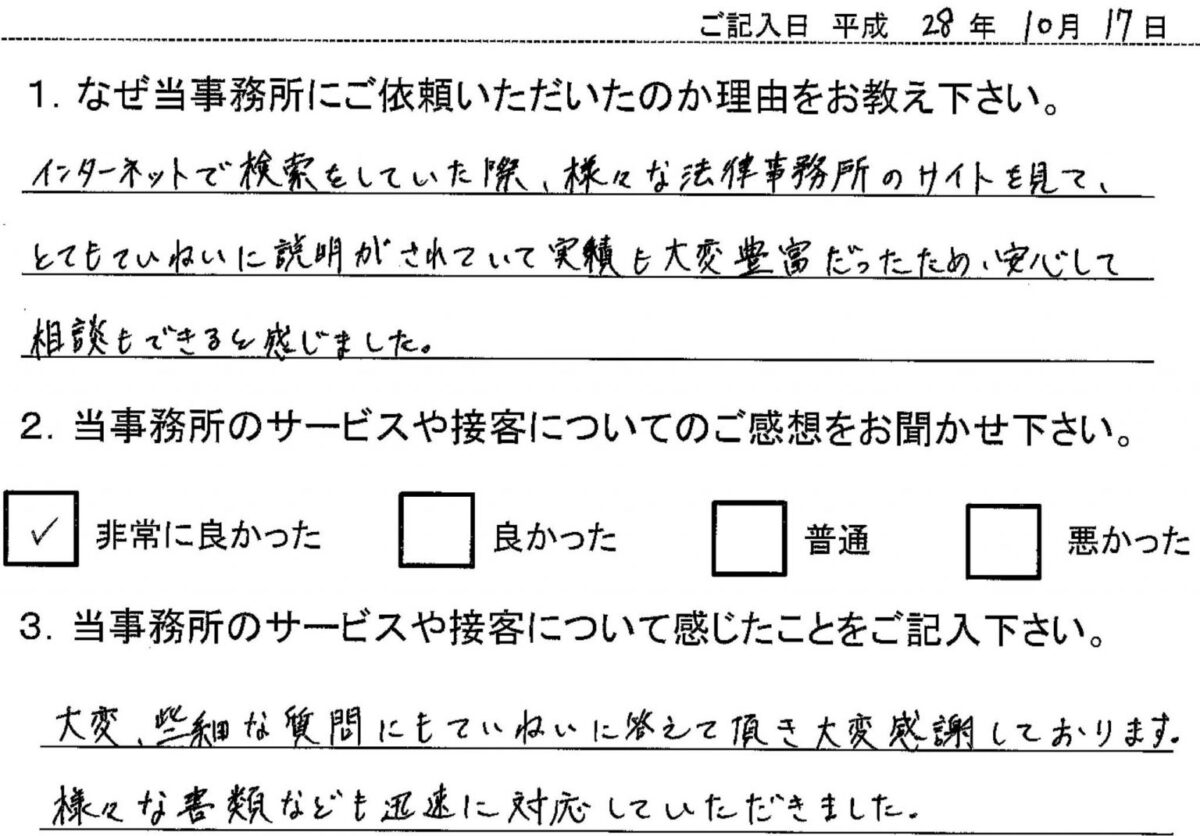 ご記入日 平成 28 年 10月 17日
1. なぜ当事務所にご依頼いただいたのか理由をお教え下さい。
インターネットで検索をしていた際、様々な法律事務所のサイトを見て、
とてもていねいに説明がされていて実績も大変豊富だったため、安心して
相談もできると感じました。
2. 当事務所のサービスや接客についてのご感想をお聞かせ下さい。
✓ 非常に良かった 良かった 普通 悪かった
3. 当事務所のサービスや接客について感じたことをご記入下さい。
大変、些細な質問にもていねいに答えて頂き大変感謝しております。
様々な書類なども迅速に対応していただきました。